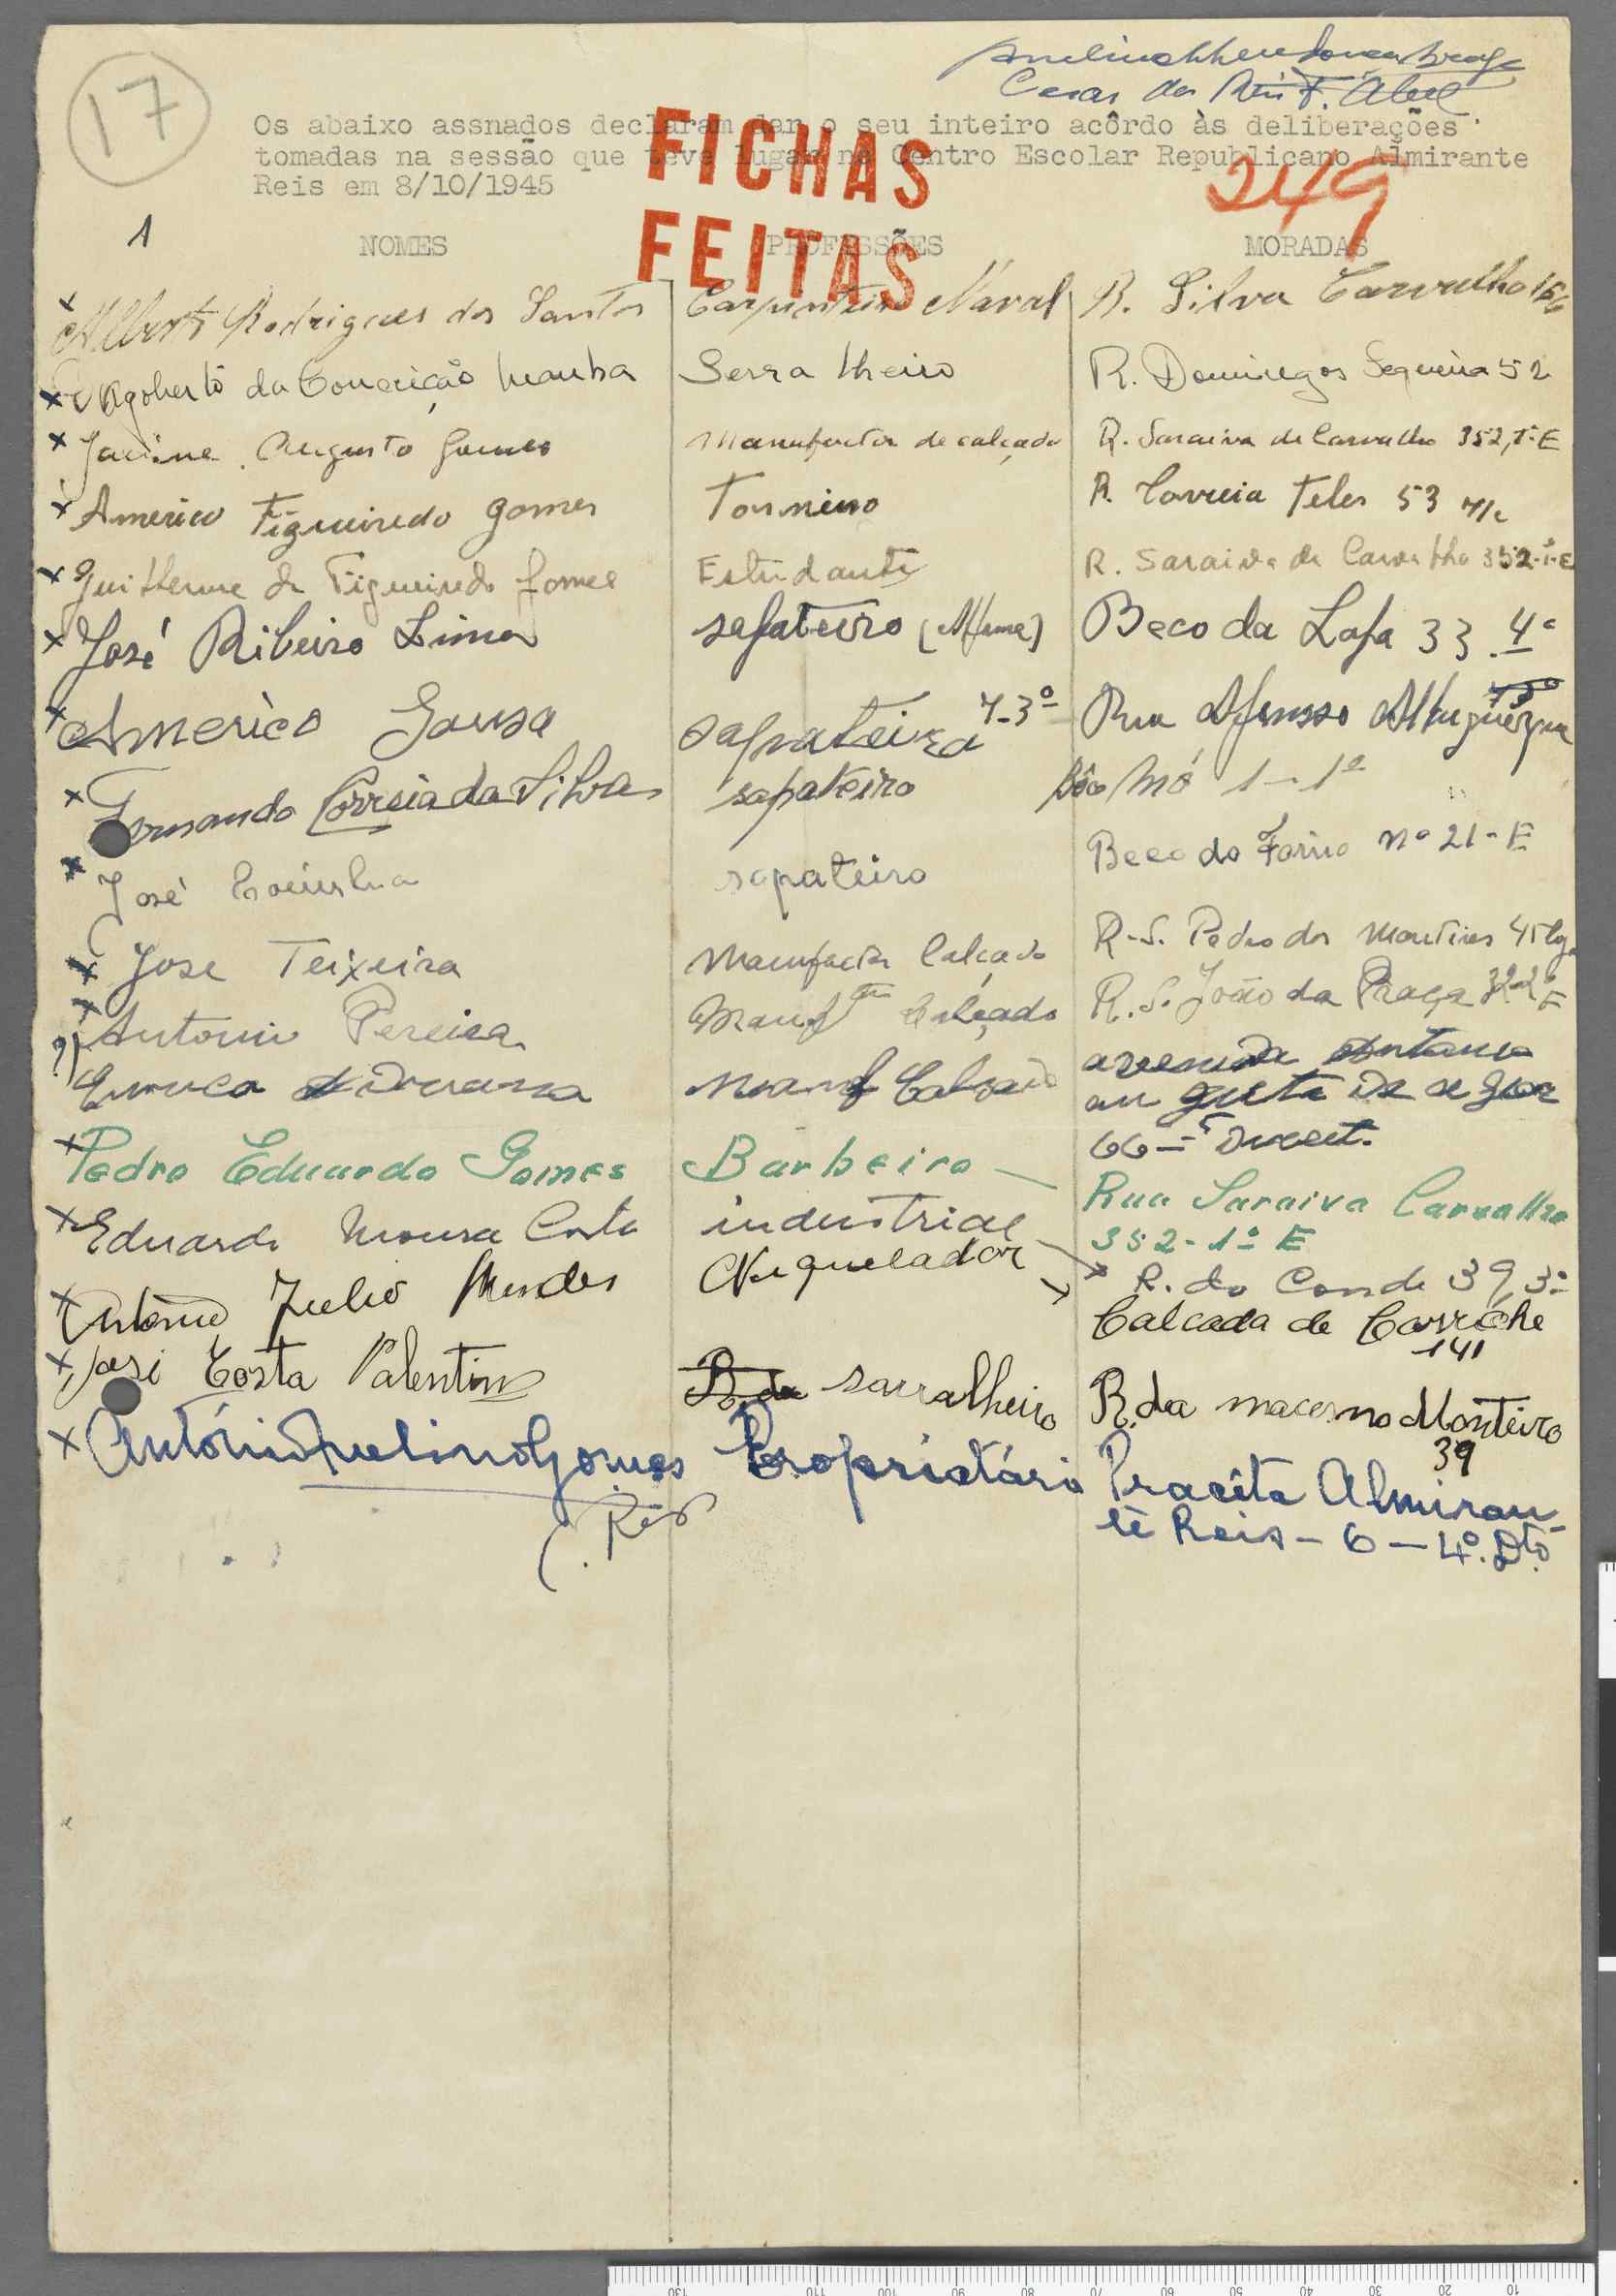 17
Os abaixo assnados declaram dar o seu inteiro acôrdo às deliberações
tomadas na sessão que teve lugar no Centro Escolar Republicano Almirante
Reis em 8/10/1945
FICHAS
FEITAS
249
1
NOMES PROFESSÕES MORADAS
Alberto Rodrigues dos Santos Carpinteiro Naval R. Silva Carvalho
Dagoberto da Conceição Serra lheiro R. Domingos Sequeira 52
Jaime Augusto Gomes Manufactor de calçado R. Saraiva de Carvalho 352, 1º E
Americo Figueiredo Gomes Torneiro R. Correia Teles 53 r/c
Guilherme de Figueiredo Gomes Estudante R. Saraiva de Carvalho 352-1º-E
José Ribeiro Lima sapateiro Beco da Lapa 33. 4º
Américo Sousa sapateiro 7-3º Rua Afonso
Fernando Correia da Silva sapateiro Bêco Mó 1-1º
José sapateiro Beco do Forno nº 21-E
Jose Teixeira Manufactor Calçado R. S. Pedro dos
Antonio Pereira Calçado R. S. João da Praça
Manf Calçado avenida
66-
Pedro Eduardo Gomes Barbeiro Rua Saraiva Carvalho
352-1º E
Eduardo Moura Costa industrial R. do Conde 39, 3º
António Julio Mendes Niquelador Calcada de Carriche
141
José Costa Valentim R. da sarralheiro R. da Monteiro
39
António Avelino Gomes Proprietário Praceta Almiran-
te Reis - 6 - 4º. Dto